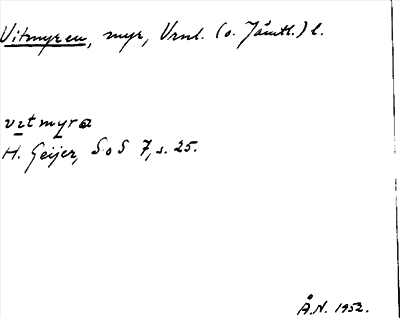 Vitmyren, myr, Vrml. (o. Jämtl.) l.
vıtmyra
H. Geijer, SoS 7, s. 25.
Å.N. 1952.